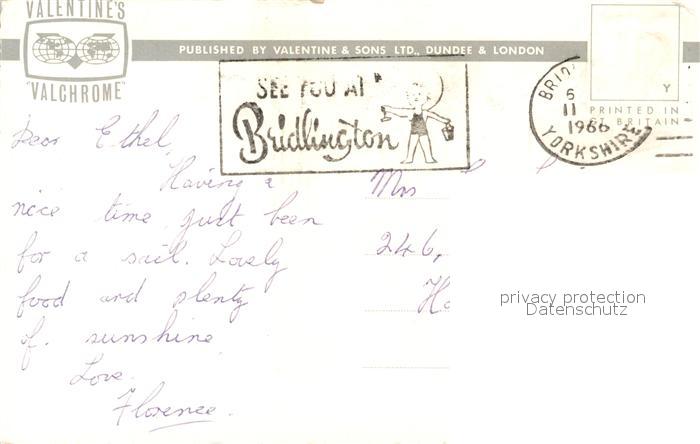 VALENTINE'S
"VALCHROME"
PUBLISHED BY VALENTINE & SONS LTD., DUNDEE & LONDON
SEE YOU AT
Bridlington
6
11
1966
YORKSHIRE
Y
PRINTED IN
BRITAIN
Dear Ethel,
Having a
nice time just been
for a sail. Lovely
food and plenty
of sunshine
Love
Florence.
Mrs
246,
privacy protection
Datenschutz